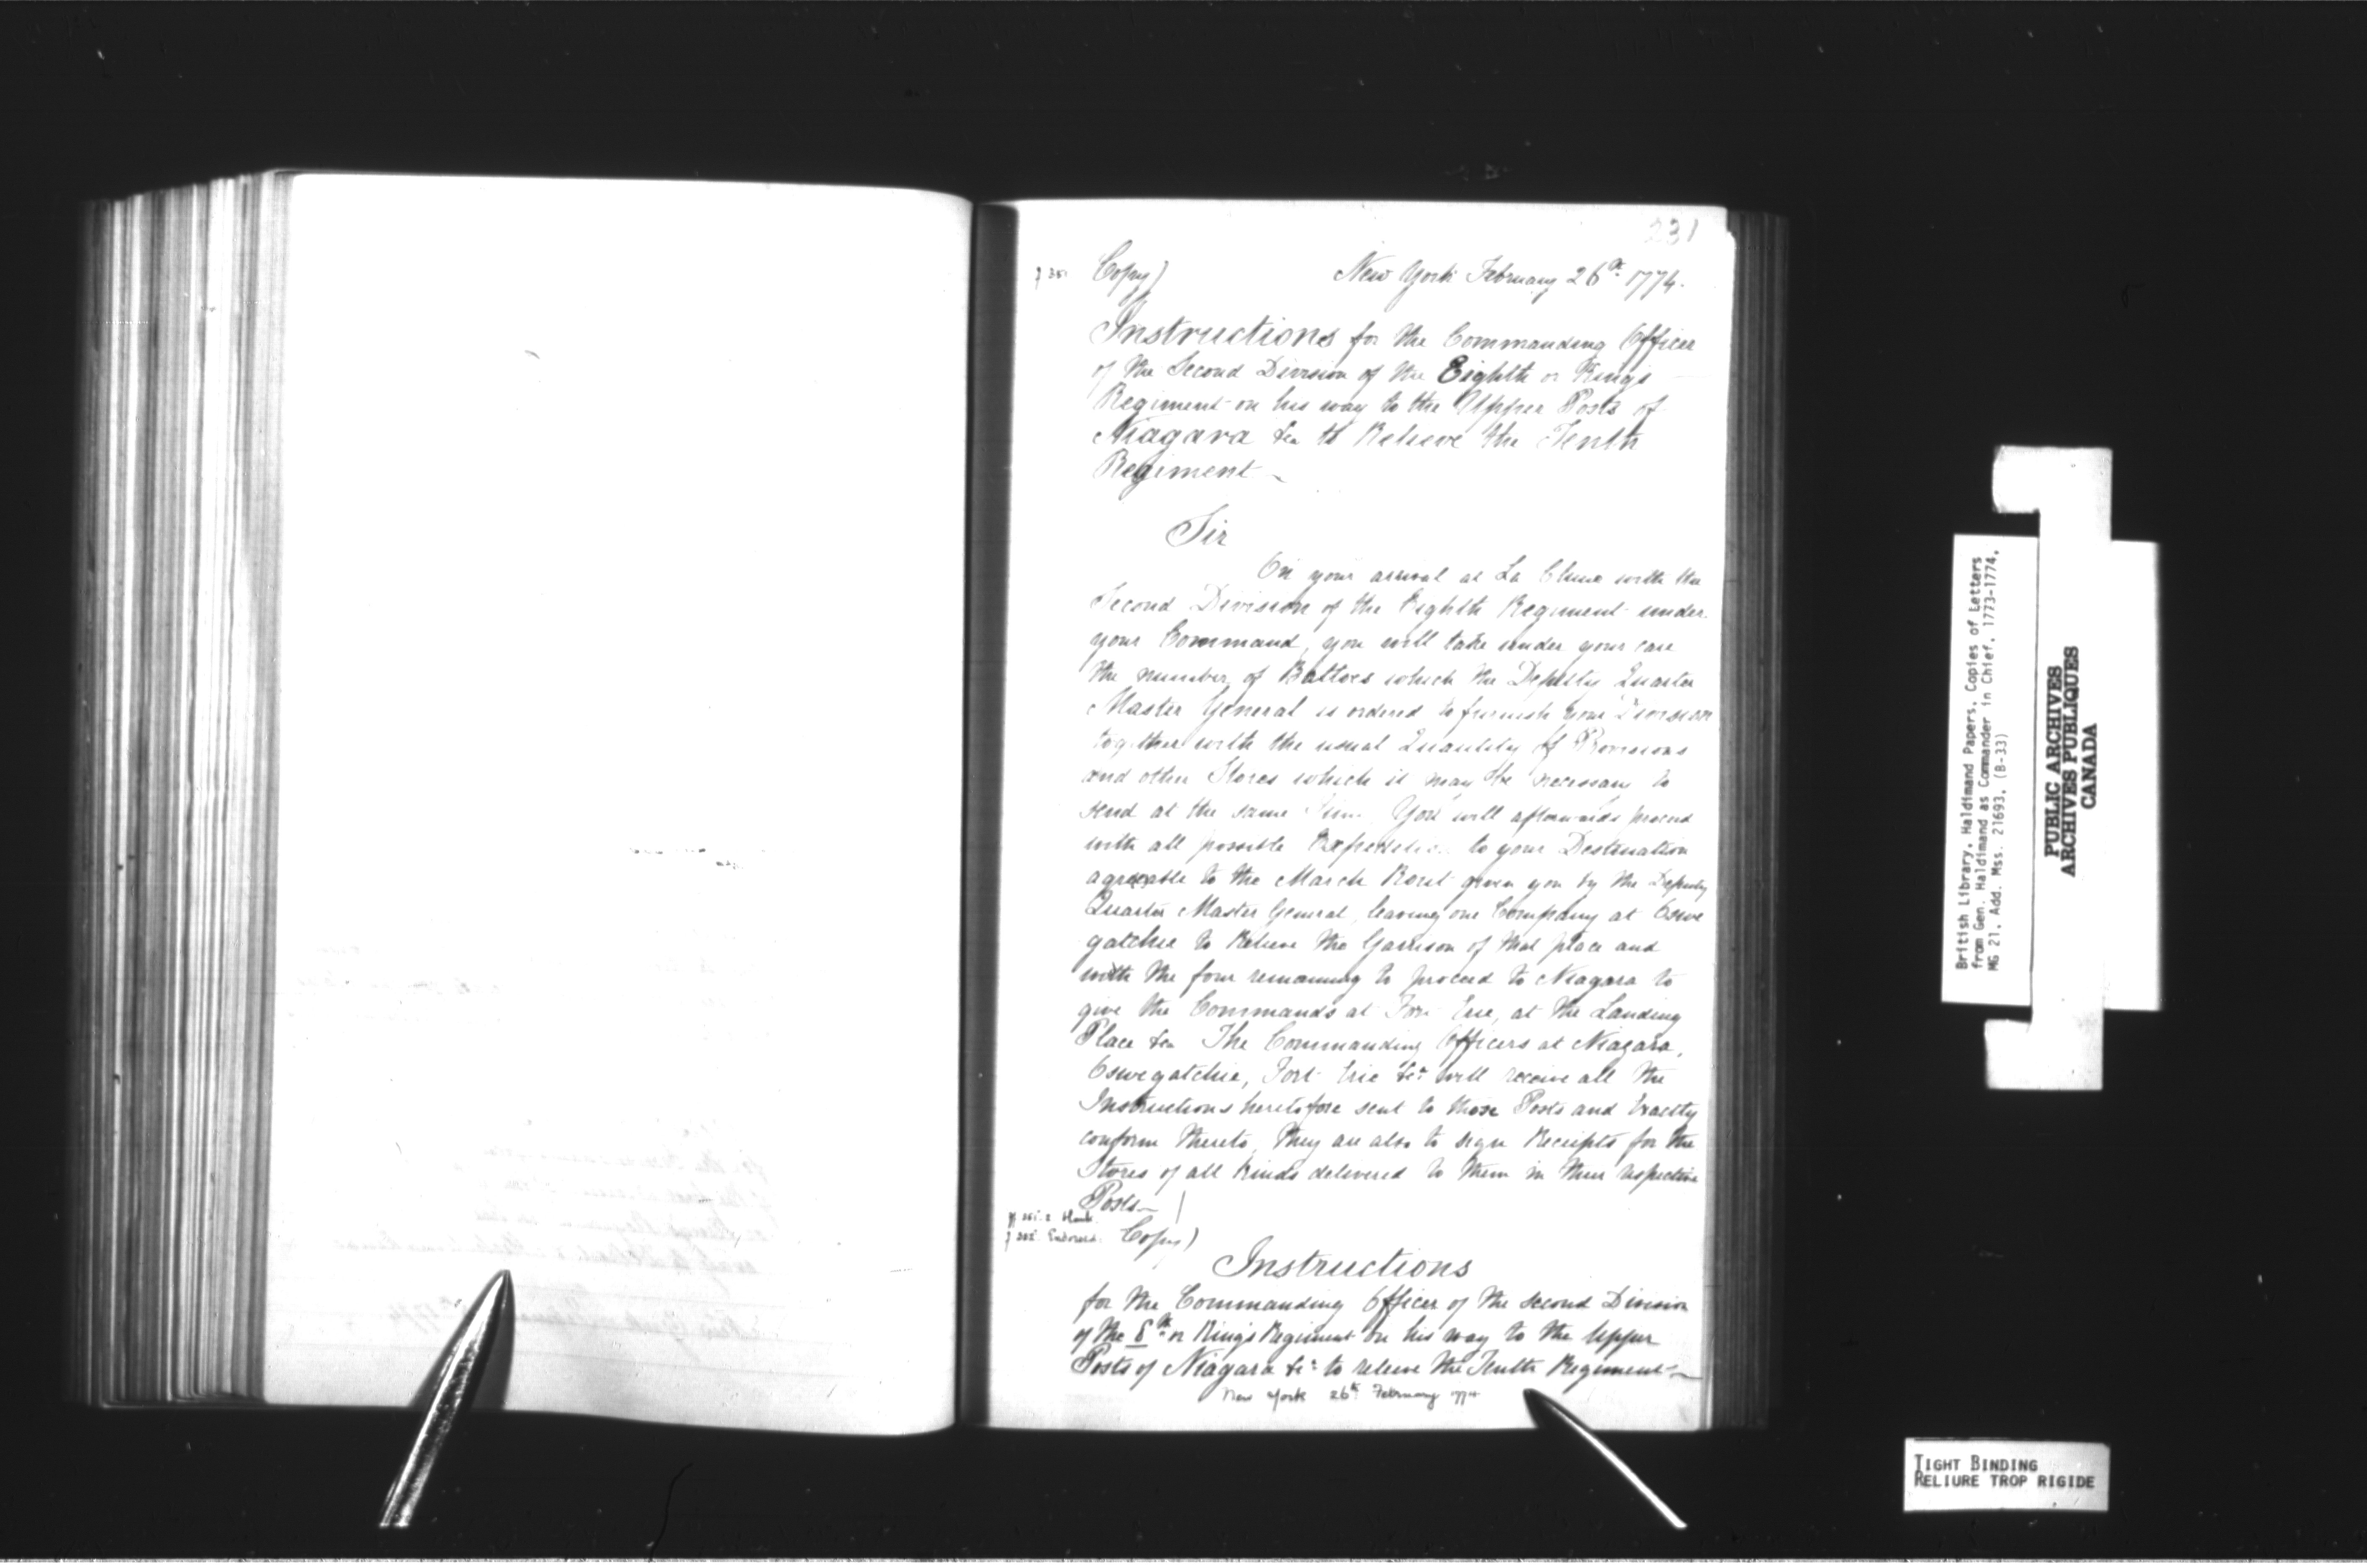 231
f 351
Copy) New York February 26th. 1774.
Instructions for the Commanding Officer
of the Second Division of the Eighth or King's
Regiment on his way to the Upper Posts of
Niagara &ca to Relieve the Tenth
Regiment
Sir
On your arrival at La Chine with the
Second Division of the Eighth Regiment under
your Command, you will take under your care
the number of Battoes which the Deputy Quarter
Master General is ordered to furnish your Division
together with the usual Quantity of Provisions
and other Stores which it may be necessary to
send at the same Time. You will afterwards proceed
with all possible Expedition to your Destination
agreeable to the March Rout given you by the Deputy
Quarter Master General, leaving one Company at Oswe
gatchie to Relieve the Garrison of that place and
with the four remaining to proceed to Niagara to
give the Commands at Fort Erie, at the Landing
Place &ca The Commanding Officers at Niagara,
Oswegatchie, Fort Erie &ca will receive all the
Instructions heretofore sent to those Posts and Exactly
conform thereto, they are also to sign Receipts for the
Stores of all kinds delivered to them in their respective
Posts
ff 351. 2 blank
f 352. Endorsed. Copy)
Instructions
for the Commanding Officer of the second Division
of the 8th or King's Regiment on his way to the Upper
Posts of Niagara &ca to relieve the Tenth Regiment
New York 26th February 1774
British Library, Haldimand Papers, Copies of Letters
from Gen. Haldimand as Commander in Chief, 1773-1774,
MG 21, Add. Mss. 21693, (B-33)
PUBLIC ARCHIVES
ARCHIVES PUBLIQUES
CANADA
TIGHT BINDING
RELIURE TROP RIGIDE